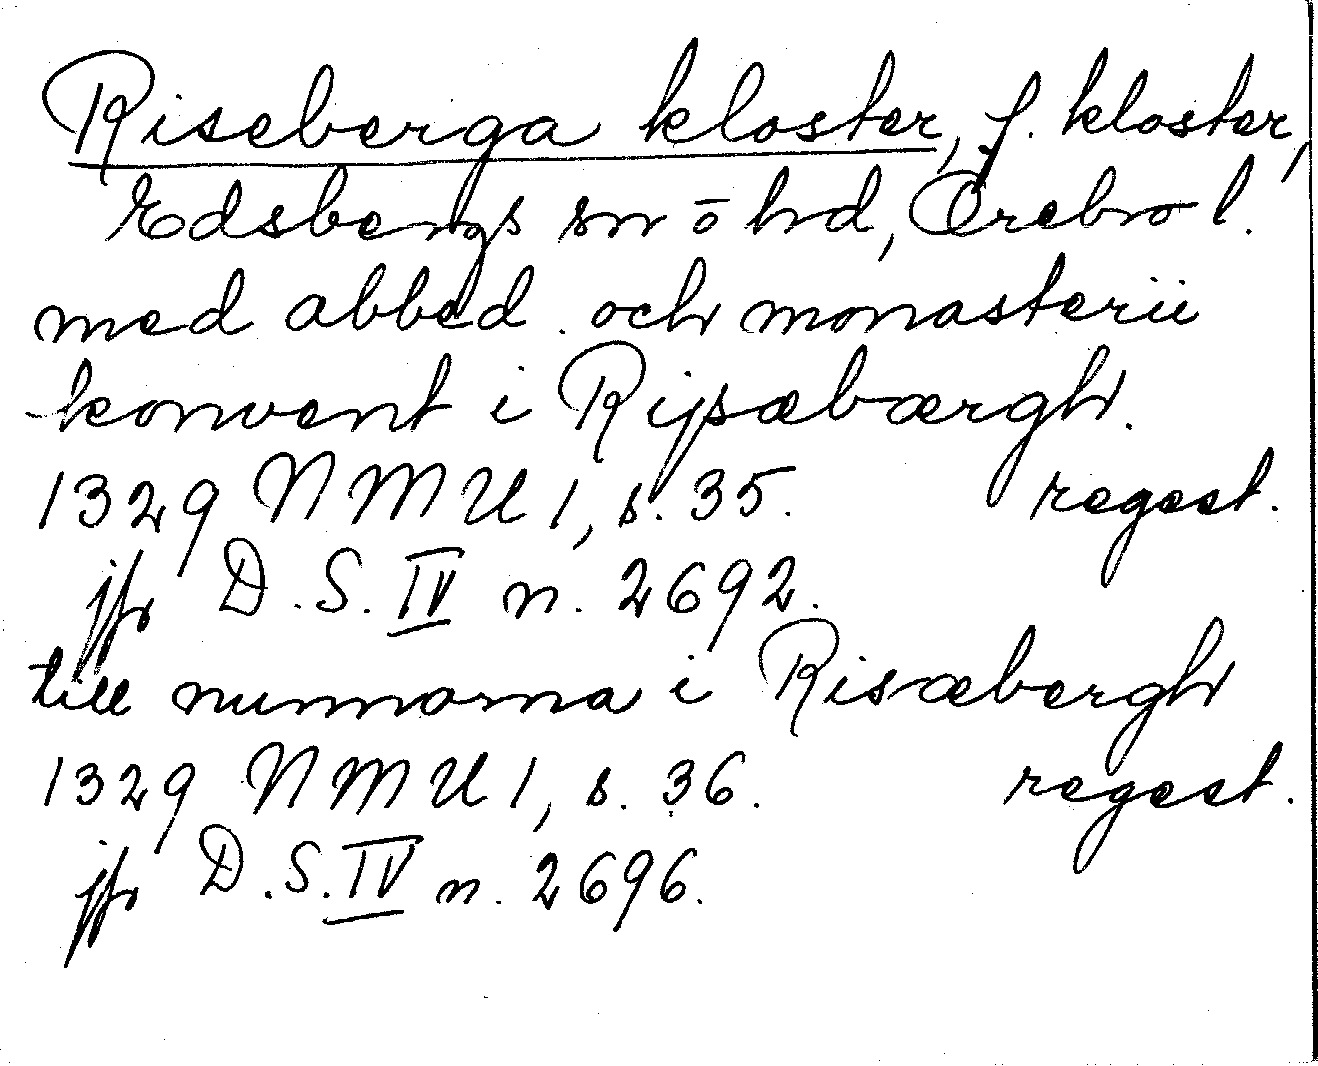 Riseberga kloster, f. kloster,
Edsbergs sn ō hd, Örebro l.
med abbed. och monasterii
konvent i Rijsæbærgh.
1329 NMU 1, s. 35. regest.
jfr D.S. IV n. 2692.
till nunnorna i Risæbergh
1329 NMU 1, s. 36. regest.
jfr D.S. IV n. 2696.